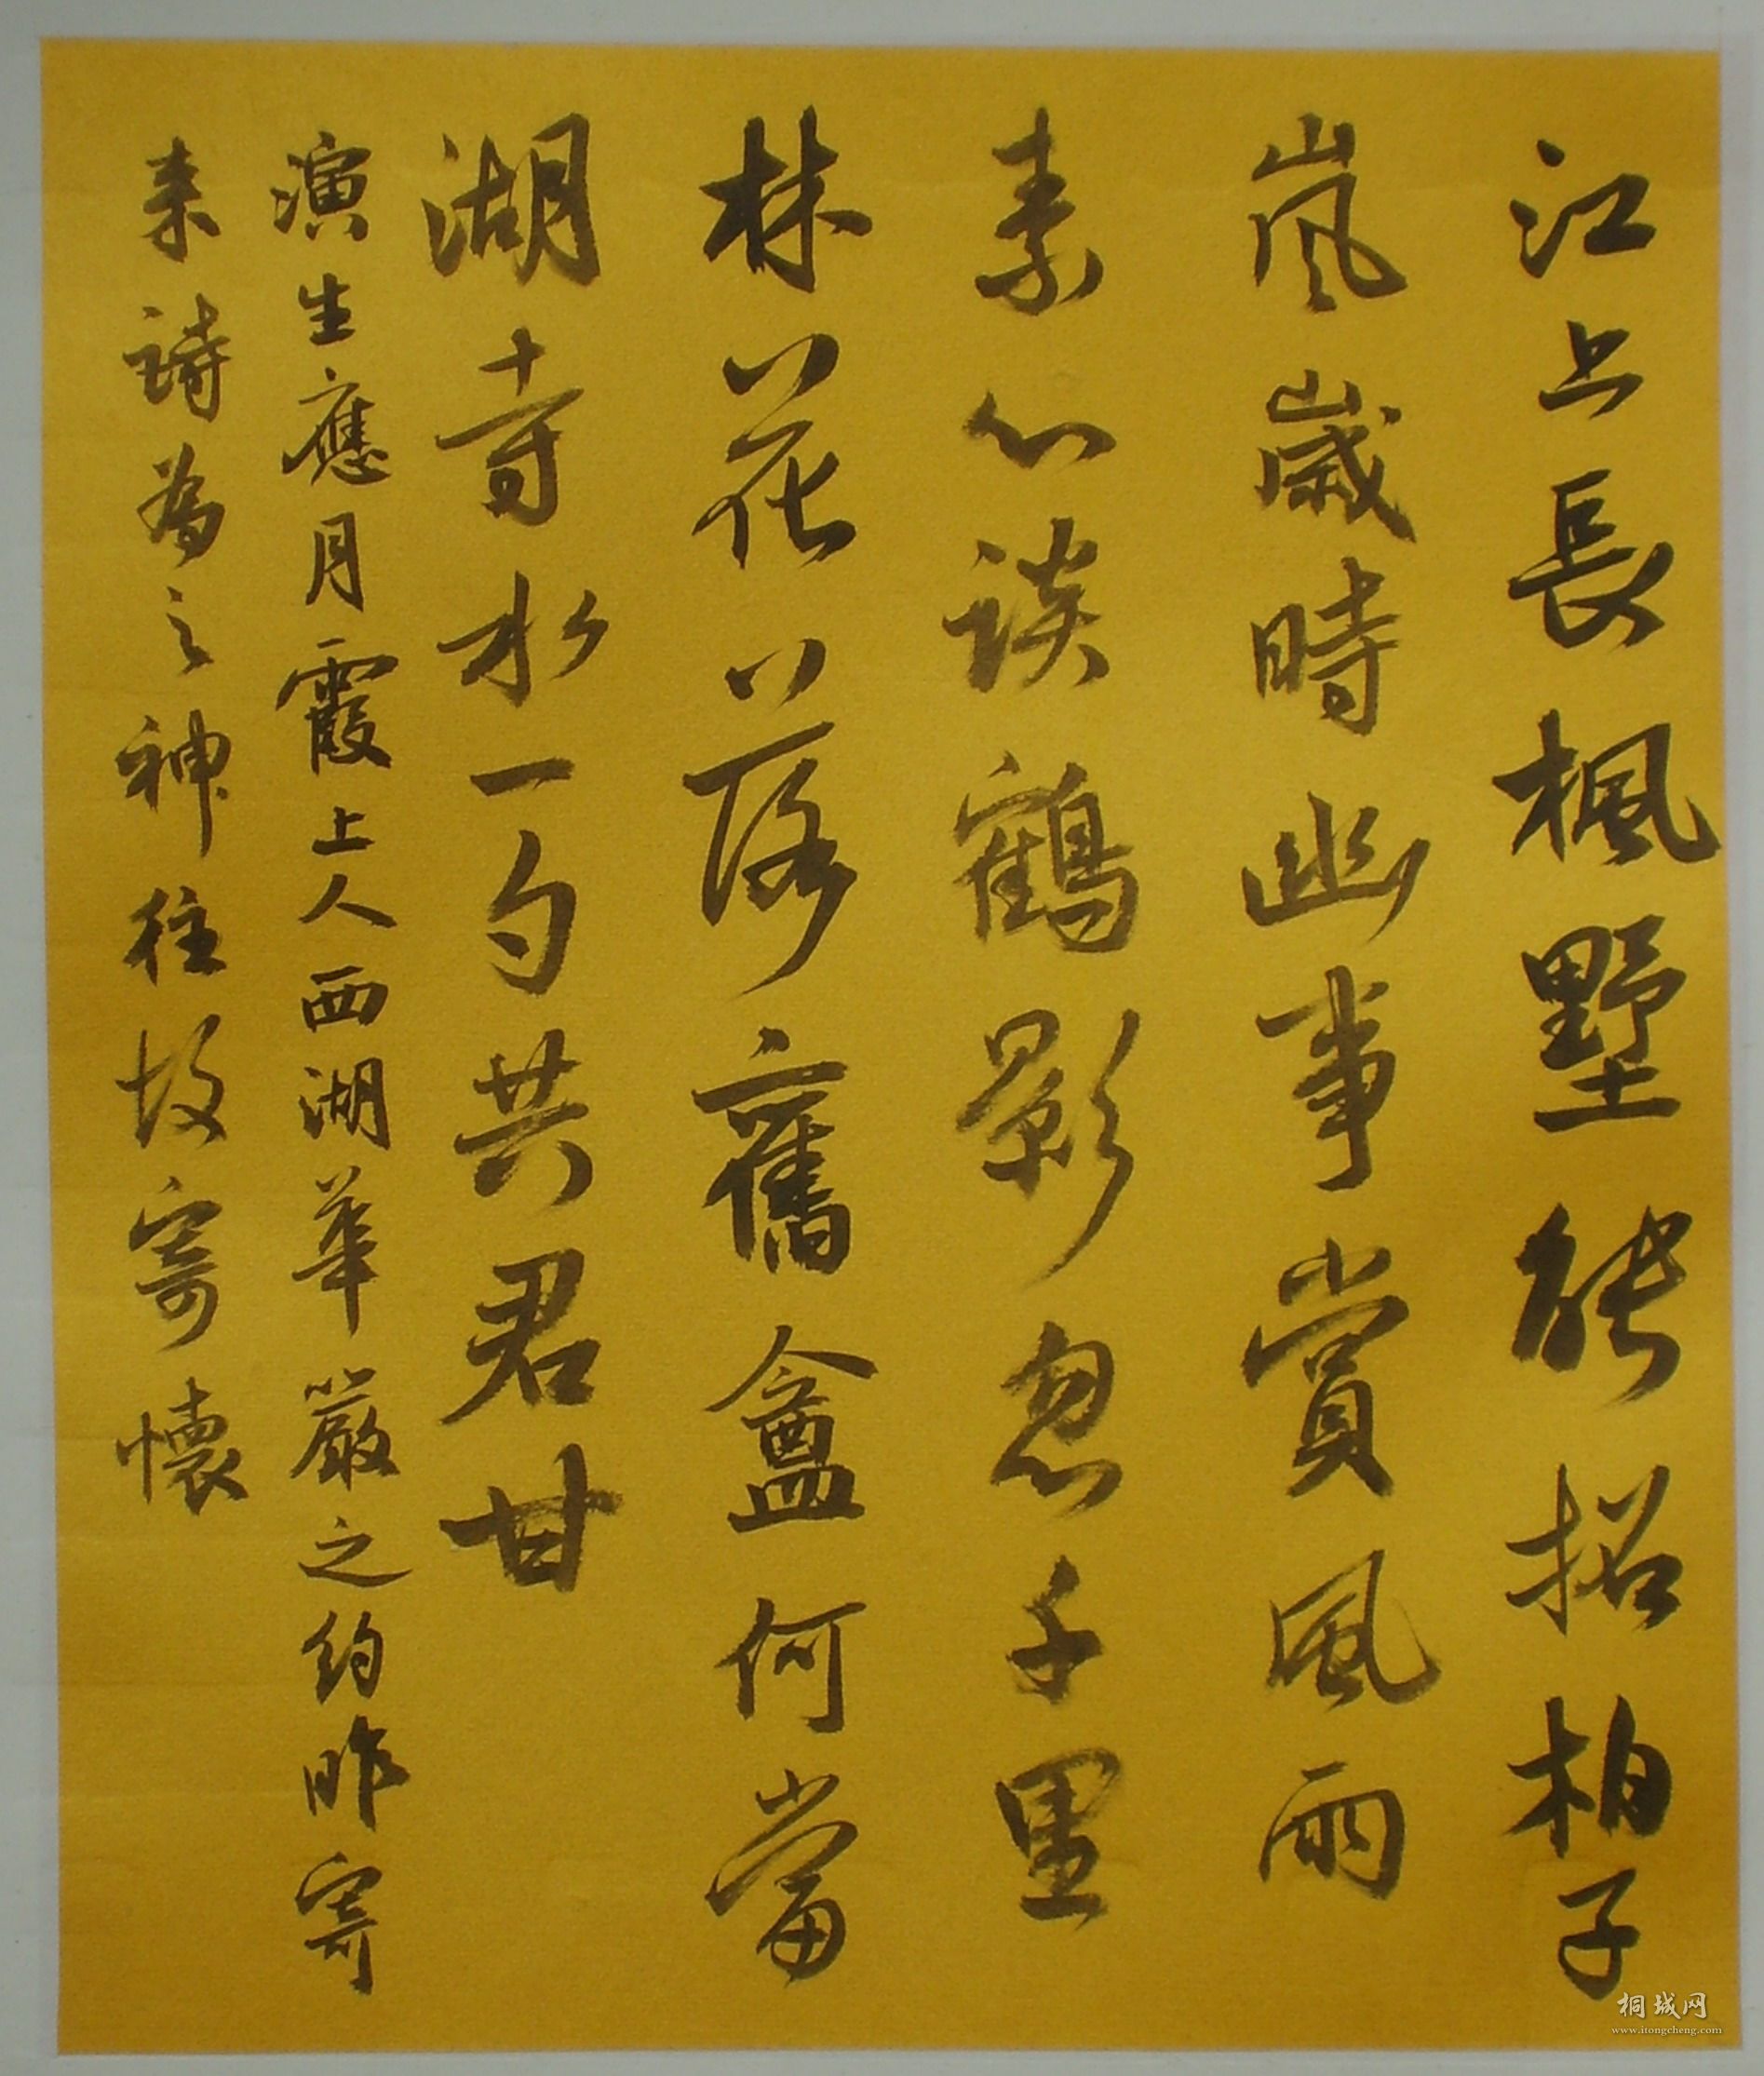 江上長楓墅能招柏子
嵐歲時幽事賞風雨
素心談鶴影忽千里
林花落舊盦何當
湖寺水一勺共君甘
演生應月霞上人西湖華嚴之約昨寄
来詩為之神往故寄懷
桐城网
www.itongcheng.com